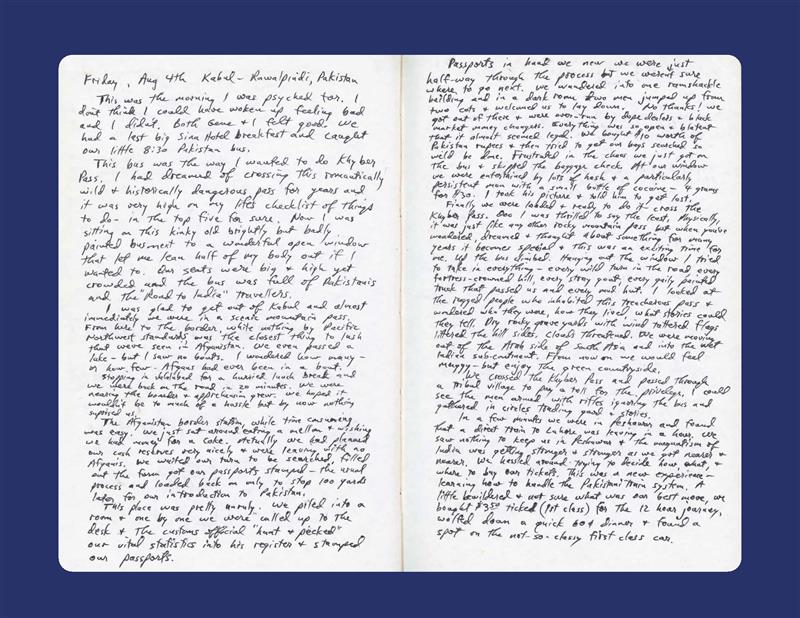 Friday, Aug 4th Kabul - Rawalpindi, Pakistan
This was the morning I was psyched for. I
don't think I could have woken up feeling bad
and I didn't. Both Gene & I felt good. We
had a last big Sina Hotel breakfast and caught
our little 8:30 Pakistan bus.
This bus was the way I wanted to do Khyber
Pass. I had dreamed of crossing this romantically
wild & historically dangerous pass for years and
it was very high on my life's checklist of things
to do - in the top five for sure. Now I was
sitting on this kinky old brightly but badly
painted bus next to a wonderful open window
that let me lean half of my body out if I
wanted to. Our seats were big & high yet
crowded and the bus was full of Pakistanis
and the "Road to India" travellers.
I was glad to get out of Kabul and almost
immediately we were in a scenic mountain pass.
From here to the border, while nothing by Pacific
Northwest standards was the closest thing to lush
that we've seen in Afganistan. We even passed a
lake - but I saw no boats. I wondered how many -
or how few - Afgans had ever been in a boat.
Stopping in Jalalabad for a hurried lunch break and
we were back on the road in 20 minutes. We were
nearing the border & apprehension grew. We hoped it
wouldn't be to much of a hassle but by now nothing
suprised us.
The Afganistan border station while time consuming
was easy. We just sat around eating a mellon & wishing
we had money for a Coke. Actually we had planned
our cash reserves very nicely & were leaving with no
Afganis. We waited our turn to be searched, filled
out the form got our passports stamped - the usual
process and loaded back on only to stop 100 yards
later for our introduction to Pakistan.
This place was pretty unruly. We piled into a
room & one by one we were called up to the
desk & the customs official "hunt & pecked"
our vital statistics into his register & stamped
our passports.
Passports in hand we new we were just
half-way through the process but we weren't sure
where to go next. We wandered into one ramshackle
building and in a dark room two men jumped up from
two cots & welcomed us to lay down. No thanks! We
got out of there & were over-run by dope dealers & black
market money changers. Everything was so open & blatent
that it almost seemed legal. We bought $10 worth of
Pakistan rupees & then tried to get our bags searched so
we'd be done. Frustrated in the chaos we just got on
the bus & skipped the baggage check. At our window
we were entertained by lots of hash & a particularly
persistent man with a small bottle of cocaine - 4 grams
for $30. I took his picture & told him to get lost.
Finally we were loaded & ready to do it - cross the
Khyber Pass. Ooo I was thrilled to say the least. Physically,
it was just like any other rocky mountain pass but when you've
wondered, dreamed & thought about something for many
years it becomes special & this was an exciting time for
me. Up the bus climbed. Hanging out the window I tried
to take in everything - every wild turn in the road, every
fortress-crowned hill, every stray goat, every gaily painted
truck that passed us and every mud hut. I looked at
the rugged people who inhabited this treacherous pass &
wondered who they were, how they lived, what stories could
they tell. Dry rocky graveyards with wind tattered flags
littered the hill sides. Clouds threatened. We were moving
out of the Arab side of South Asia and into the wet
Indian subcontinent. From now on we would feel
muggy - but enjoy the green countryside.
We crossed the Khyber Pass and passed through
a tribal village to pay a toll for the priveledge. I could
see the men armed with rifles ignoring the bus and
gathered in circles trading goods & stories.
In a few minutes we were in Peshawar and found
that a direct train to Lahore was leaving in a hour. We
saw nothing to keep us in Peshawar & the magnatism of
India was getting stronger & stronger as we got nearer &
nearer. We hassled around trying to decide how, what, &
where to buy our tickets. This was a new experience -
learning how to handle the Pakistani train system. A
little bewildered & not sure what was our best move, we
bought $3.50 ticked (1st class) for the 12 hour journey,
wolfed down a quick 60¢ dinner & found a
spot on the not-so-classy first class car.